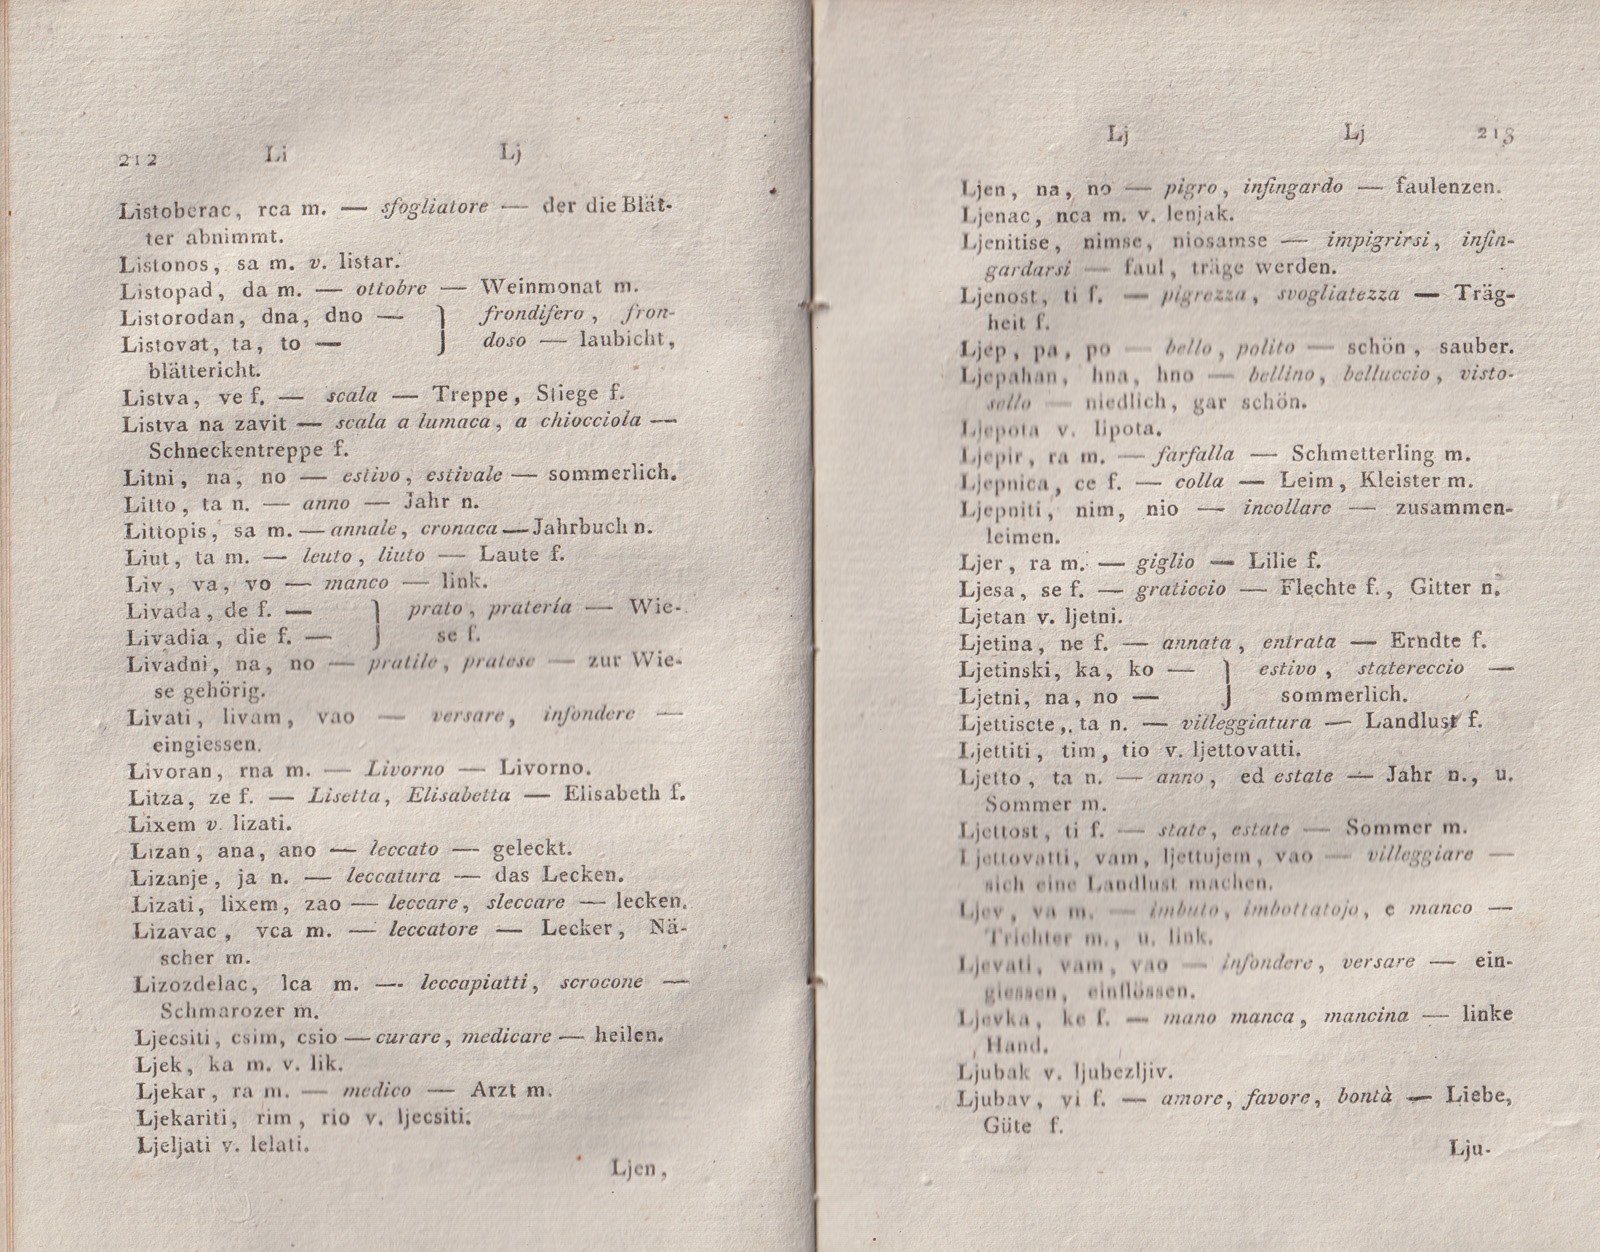 212 Li Lj
Listoberac, rca m. — sfogliatore — der die Blät-
ter abnimmt.
Listonos, sa m. v. listar.
Listopad, da m. — ottobre — Weinmonat m.
Listorodan, dna, dno — } frondifero, fron-
Listovat, ta, to — } doso — laubicht,
blättericht.
Listva, ve f. — scala — Treppe, Stiege f.
Listva na zavit — scala a lumaca, a chiocciola —
Schneckentreppe f.
Litni, na, no — estivo, estivale — sommerlich.
Litto, ta n. — anno — Jahr n.
Littopis, sa m. — annale, cronaca — Jahrbuch n.
Liut, ta m. — leuto, liuto — Laute f.
Liv, va, vo — manco — link.
Livada, de f. — } prato, pratería — Wie-
Livadia, die f. — } se f.
Livadni, na, no — pratile, pratese — zur Wie-
se gehörig.
Livati, livam, vao — versare, infondere —
eingiessen.
Livoran, rna m. — Livorno — Livorno.
Litza, ze f. — Lisetta, Elisabetta — Elisabeth f.
Lixem v. lizati.
Lizan, ana, ano — leccato — geleckt.
Lizanje, ja n. — leccatura — das Lecken.
Lizati, lixem, zao — leccare, sleccare — lecken.
Lizavac, vca m. — leccatore — Lecker, Nä-
scher m.
Lizozdelac, lca m. — leccapiatti, scrocone —
Schmarozer m.
Ljecsiti, csim, csio — curare, medicare — heilen.
Ljek, ka m. v. lik.
Ljekar, ra m. — medico — Arzt m.
Ljekariti, rim, rio v. ljecsiti.
Ljeljati v. lelati.
Ljen,
Lj Lj 213
Ljen, na, no — pigro, infingardo — faulenzen.
Ljenac, nca m. v. lenjak.
Ljenitise, nimse, niosamse — impigrirsi, infin-
gardarsi — faul, träge werden.
Ljenost, ti f. — pigrezza, svogliatezza — Träg-
heit f.
Ljep, pa, po — bello, polito — schön, sauber.
Ljepahan, hna, hno — bellino, belluccio, visto-
sello — niedlich, gar schön.
Ljepota v. lipota.
Ljepir, ra m. — farfalla — Schmetterling m.
Ljepnica, ce f. — colla — Leim, Kleister m.
Ljepniti, nim, nio — incollare — zusammen-
leimen.
Ljer, ra m. — giglio — Lilie f.
Ljesa, se f. — graticcio — Flechte f., Gitter n.
Ljetan v. ljetni.
Ljetina, ne f. — annata, entrata — Erndte f.
Ljetinski, ka, ko — } estivo, statereccio —
Ljetni, na, no — } sommerlich.
Ljettiscte, ta n. — villeggiatura — Landlust f.
Ljettiti, tim, tio v. ljettovatti.
Ljetto, ta n. — anno, ed estate — Jahr n., u.
Sommer m.
Ljettost, ti f. — state, estate — Sommer m.
Ljettovatti, vam, ljettujem, vao — villeggiare —
sich eine Landlust machen.
Ljev, va m. — imbuto, imbottatojo, e manco —
Trichter m., u. link.
Ljevati, vam, vao — infondere, versare — ein-
giessen, einflössen.
Ljevka, ke f. — mano manca, mancina — linke
Hand.
Ljubak v. ljubezljiv.
Ljubav, vi f. — amore, favore, bontà — Liebe,
Güte f.
Lju-